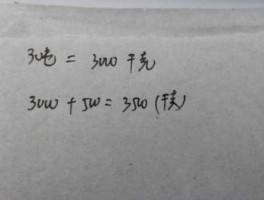 3吨 = 3000 千克
3000 + 500 = 3500 (千克)